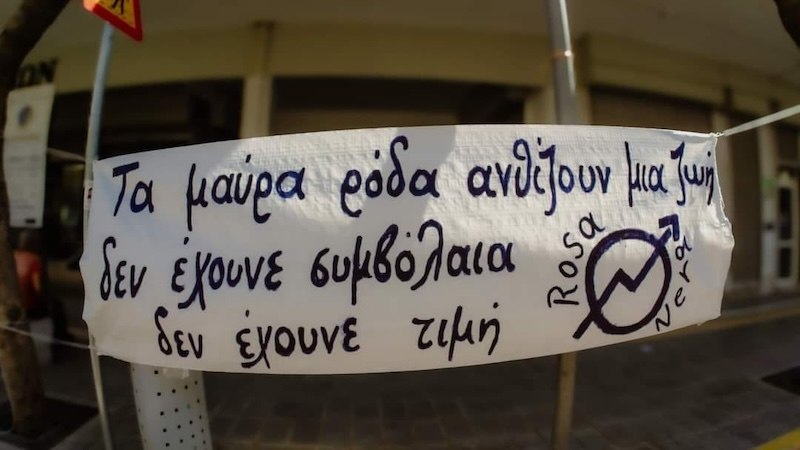 ΩΝ
Τα μαύρα ρόδα ανθίζουν μια ζωή
δεν έχουνε συμβόλαια
δεν έχουνε τιμή
Rosa
Nera